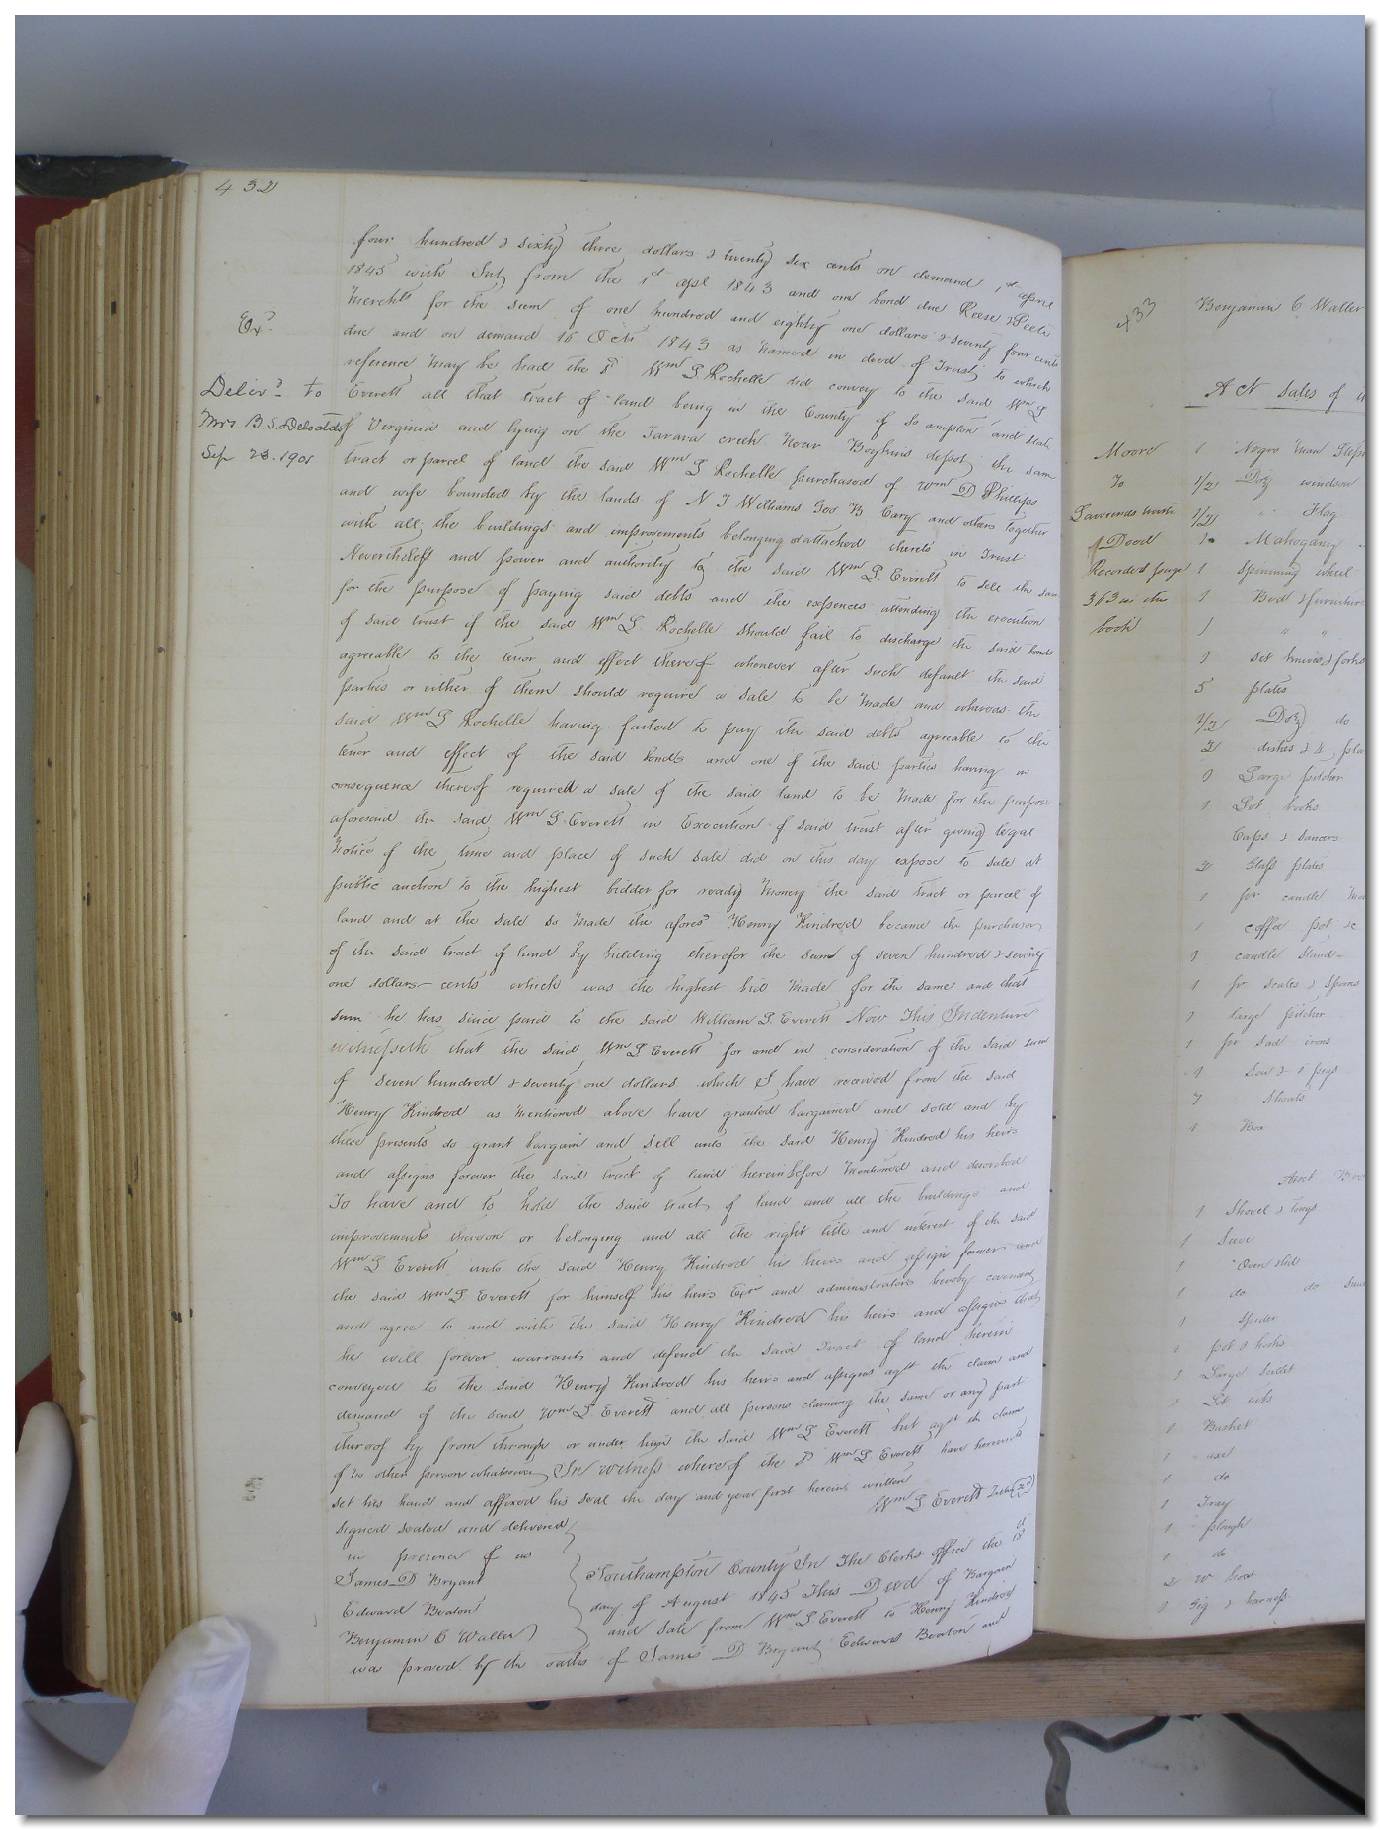 432
four hundred & sixty three dollars & twenty six cents on demand 1st April
1845 with Int from the 1st apl 1843 and one bond due Reese &
Merchts for the sum of one hundred and eighty one dollars & seventy four cents
Exd
due and on demand 16 Octr 1843 as named in deed of Trust to which
reference may be had the sd Wm S Rochelle did convey to the said Wm S
Delivd to
Everett all that tract of land being in the County of So ampton and state
Mrs B.S.
of Virginia and lying on the Tarara creek near Boykins depot, the same
Sep 23. 1901
tract or parcel of land the said Wm S Rochelle purchased of Wm D Phillips
and wife bounded by the lands of N T Williams B Cary and others together
with all the buildings and improvements belonging & attached thereto in Trust
Nevertheless and power and authority to the said Wm S. Everett to sell the same
for the purpose of paying said debts and the expences attending the execution
of said trust if the said Wm S. Rochelle should fail to discharge the said bonds
agreeable to the tenor and effect thereof whenever after such default the said
parties or either of them should require a sale to be made and whereas the
said Wm S Rochelle having failed to pay the said debts agreeable to the
tenor and effect of the said bonds and one of the said parties having in
consequence thereof required a sale of the said land to be made for the purpose
aforesaid the said Wm S. Everett in Execution of said trust after giving legal
notice of the time and place of such sale did on this day expose to sale at
public auction to the highest bidder for ready money the said tract or parcel of
land and at the sale so made the aforesd Henry Kindred became the purchaser
of the said tract of land by bidding therefor the sum of seven hundred & seventy
one dollars – cents which was the highest bid made for the same and that
sum he has since paid to the said William S. Everett Now This Indenture
witnesseth that the said Wm S Everett for and in consideration of the said sum
of seven hundred & seventy one dollars which I have received from the said
Henry Kindred as mentioned above have granted bargained and sold and by
these presents do grant bargain and sell unto the said Henry Kindred his heirs
and assigns forever the said tract of land hereinbefore mentioned and described
To have and to hold the said tract of land and all the buildings and
improvements thereon or belonging and all the right title and interest of the said
Wm S Everett unto the said Henry Kindred his heirs and assigns forever and
the said Wm S Everett for himself his heirs Exr and administrators hereby covenant
and agree to and with the said Henry Kindred his heirs and assigns that
he will forever warrant and defend the said Tract of land herein
conveyed to the said Henry Kindred his heirs and assigns agst the claim and
demand of the said Wm S Everett and all persons claiming the same or any part
thereof by from through or under him the said Wm S Everett but agst the claim
of no other person whatsoever In witness whereof the sd Wm S Everett have hereunto
set his hand and affixed his seal the day and year first herein written
Wm S Everett
signed sealed and delivered
in presence of us
James D Bryant
Edward Beaton
Benjamin C Waller
Southampton County In The Clerks office the
day of August 1845 This Deed of Bargain
and sale from Wm S Everett to Henry Kindred
was proved by the oaths of James D Bryant Edward Beaton and
433
Benjamin C Waller
A Ct sales of
Moore
To
Deed
Recorded page
363 in this
book
1 Negro man
1/2 Doz windsor
1/2 " Flag
1 Mahogany
1 spinning wheel
1 Bed & furniture
1 " "
1 set knives & forks
5 plates
1/2 Doz do
2 dishes &
1 Large pitcher
1 Lot books
Cups & saucers
2 Glass plates
1 pr candle
1 coffee pot &c
1 candle stand
1 pr scales &
1 large pitcher
1 pr sad irons
1 Sow & 1 pigs
7 Shoats
1 Boa
1 Shovel & tongs
1 Sieve
1 Oven &lid
1 do do
1 spider
1 pot & hooks
1 Large
1 Lot
1 Basket
1 axe
1 do
1 Tray
1 plough
1 do
2 w hoes
1 Gig & harness